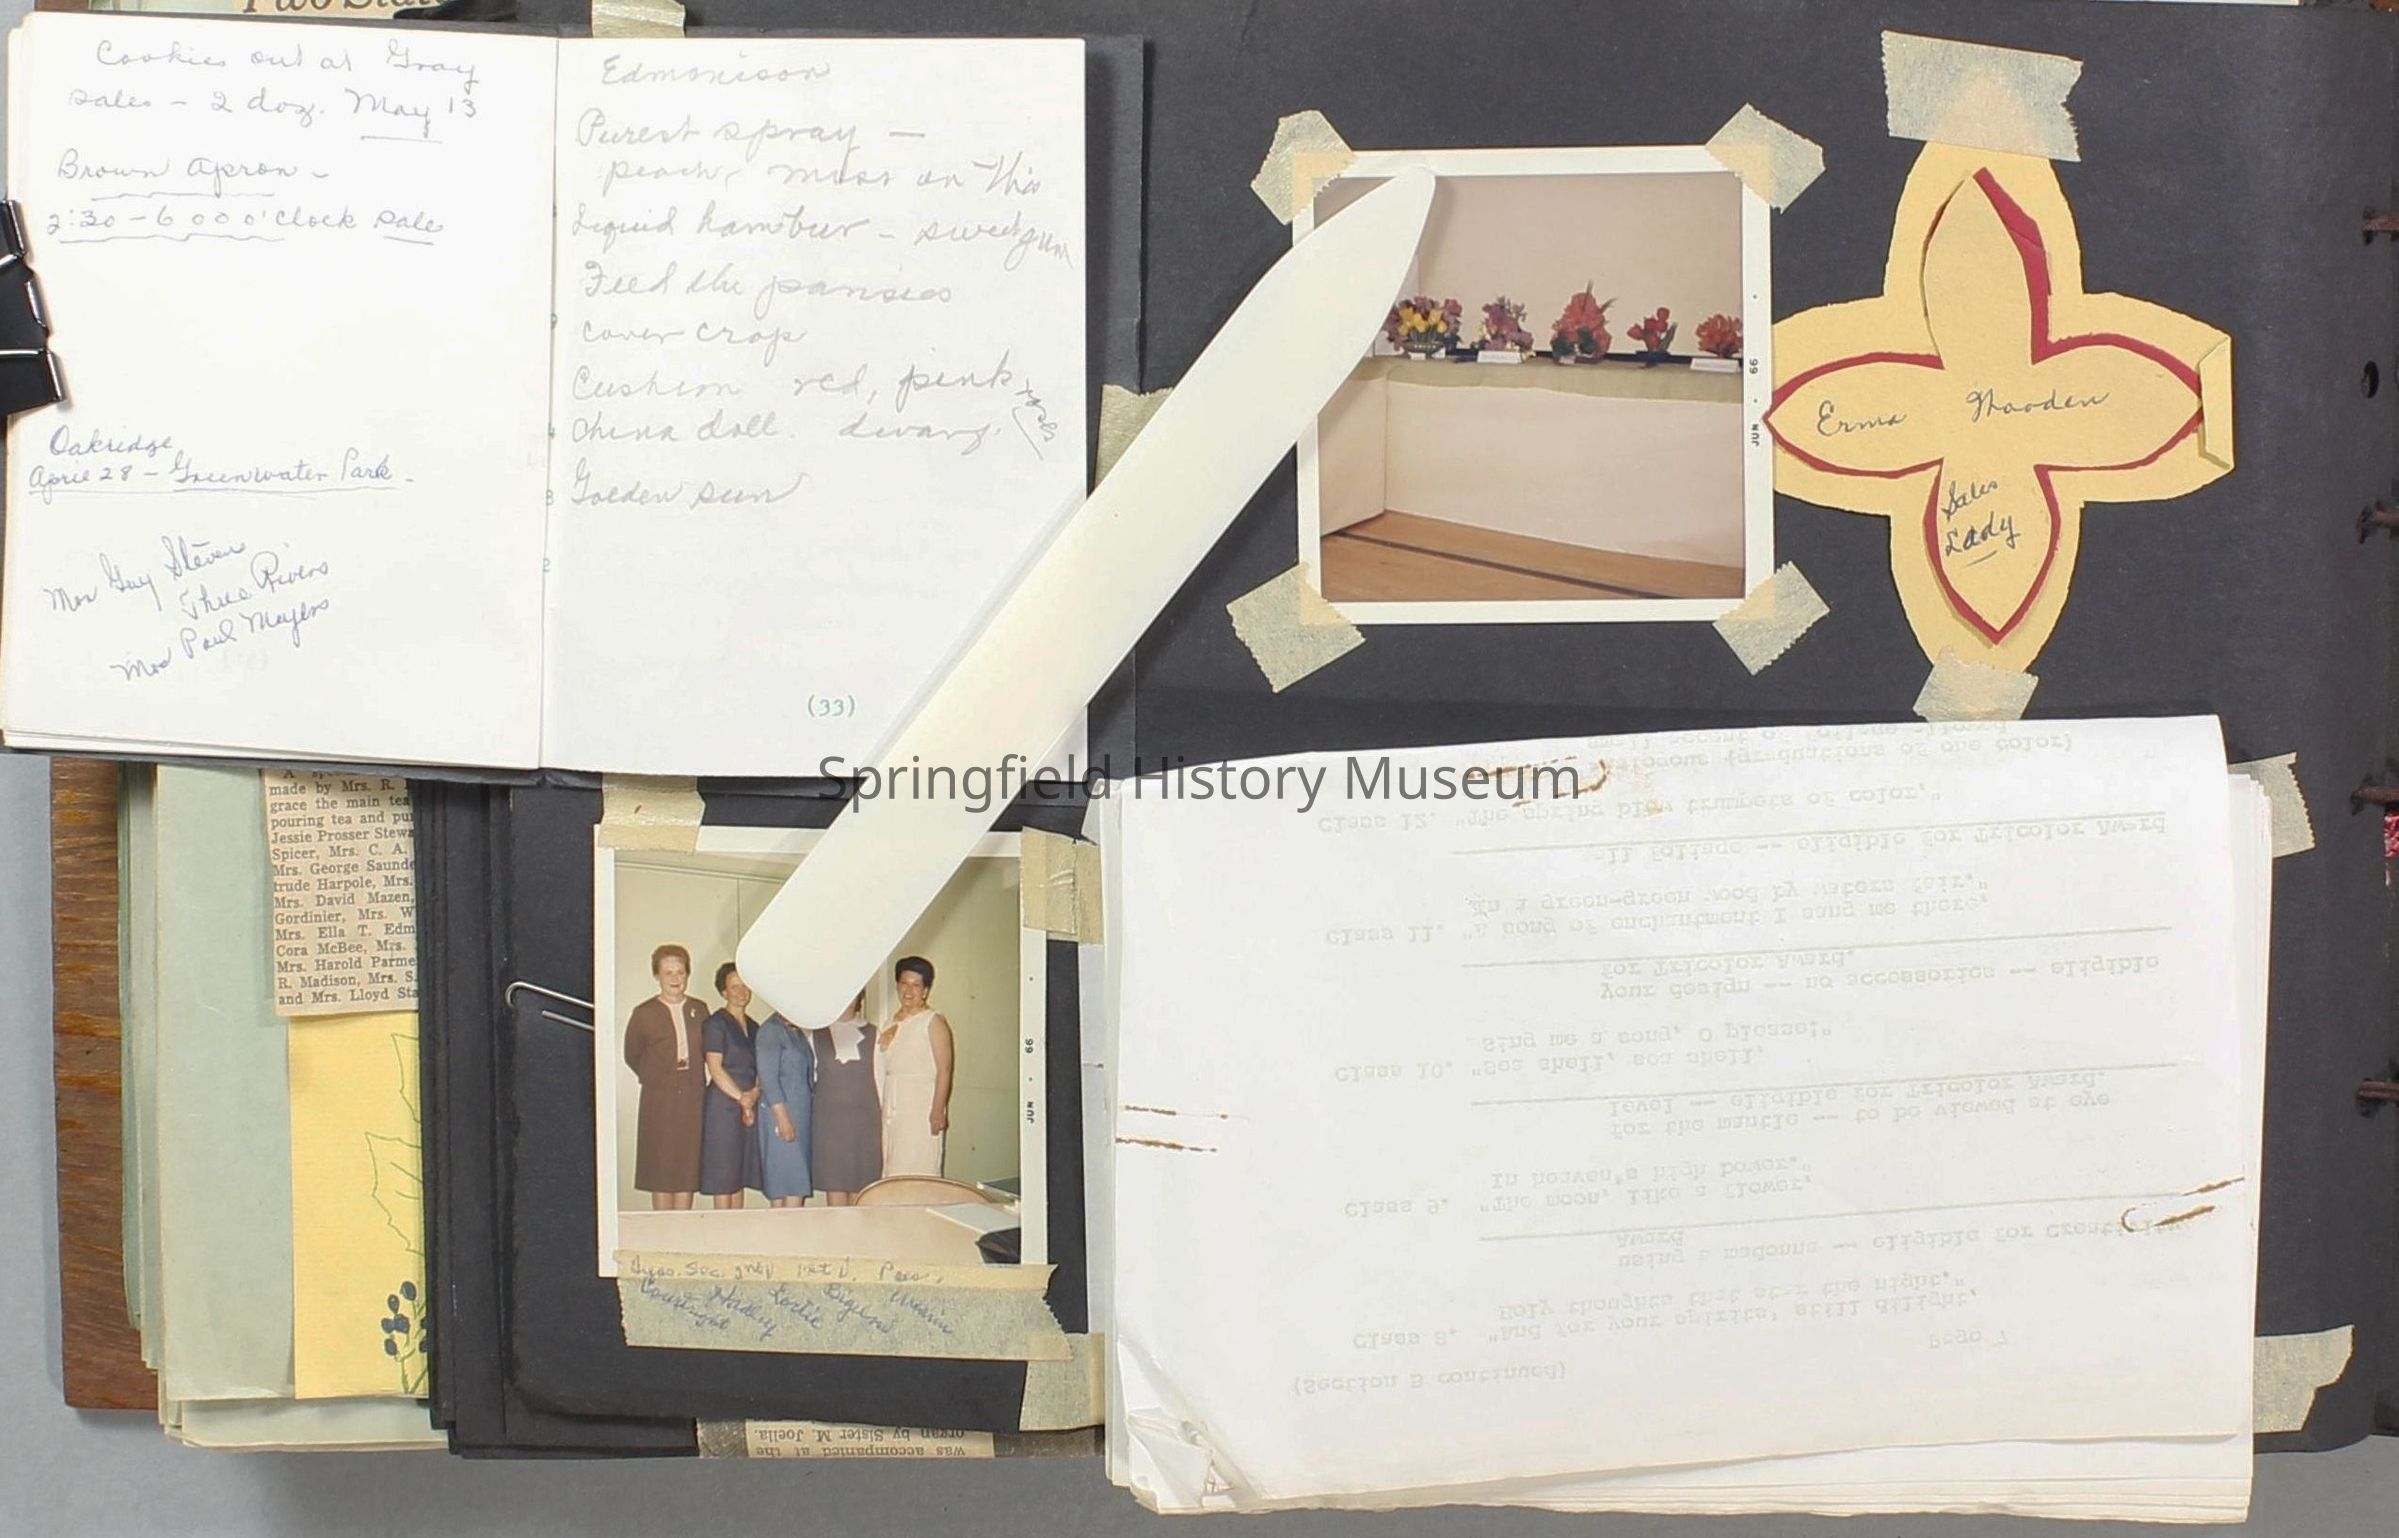 Two
Cookies out at Gray
sales - 2 doz. May 13
Brown Apron -
2:30 - 6 000 o'clock sale
Oakridge
April 28 - Greenwater Park -
Mrs Guy Stevens
Three Rivers
Mrs Paul Mayers
Edmonison
Purest spray -
peach, moss on this
Liquid hambur - sweetgum
Feed the pansies
cover crop
Cushion red, pink
China doll. dwarf.
Golden sun
(33)
JUN • 66
Erma Wooden
Sales
Lady
Springfield History Museum
made by Mrs. R.
grace the main tea
pouring tea and pu
Jessie Prosser Stewa
Spicer, Mrs. C. A.
Mrs. George Saunde
trude Harpole, Mrs.
Mrs. David Mazen,
Gordinier, Mrs. W
Mrs. Ella T. Edm
Cora McBee, Mrs.
Mrs. Harold Parme
R. Madison, Mrs. S.
and Mrs. Lloyd Sta
JUN • 66
Treas. Sec. 2nd V. 1st V. Pres.
Courtright Hadley
was accompanied at the
organ by Sister M. Joella.
(Section B continued)
Page 7
Class 8. "And for your spirits' still delight,
Holy thoughts that star the night."
using a madonna -- eligible for Creativity
Award
Class 9. "The moon, like a flower,
In heaven's high bower."
for the mantle -- to be viewed at eye
level -- eligible for Tricolor Award.
Class 10. "Sea shell, sea shell,
Sing me a song, O please!"
your design -- no accessories -- eligible
for Tricolor Award.
Class 11. "A song of enchantment I sang me there,
In a green-green wood by waters fair."
all foliage -- eligible for Tricolor Award
Class 12. "The spring blew trumpets of color,"
analogous (graduations of one color)
small accent of foliage allowed